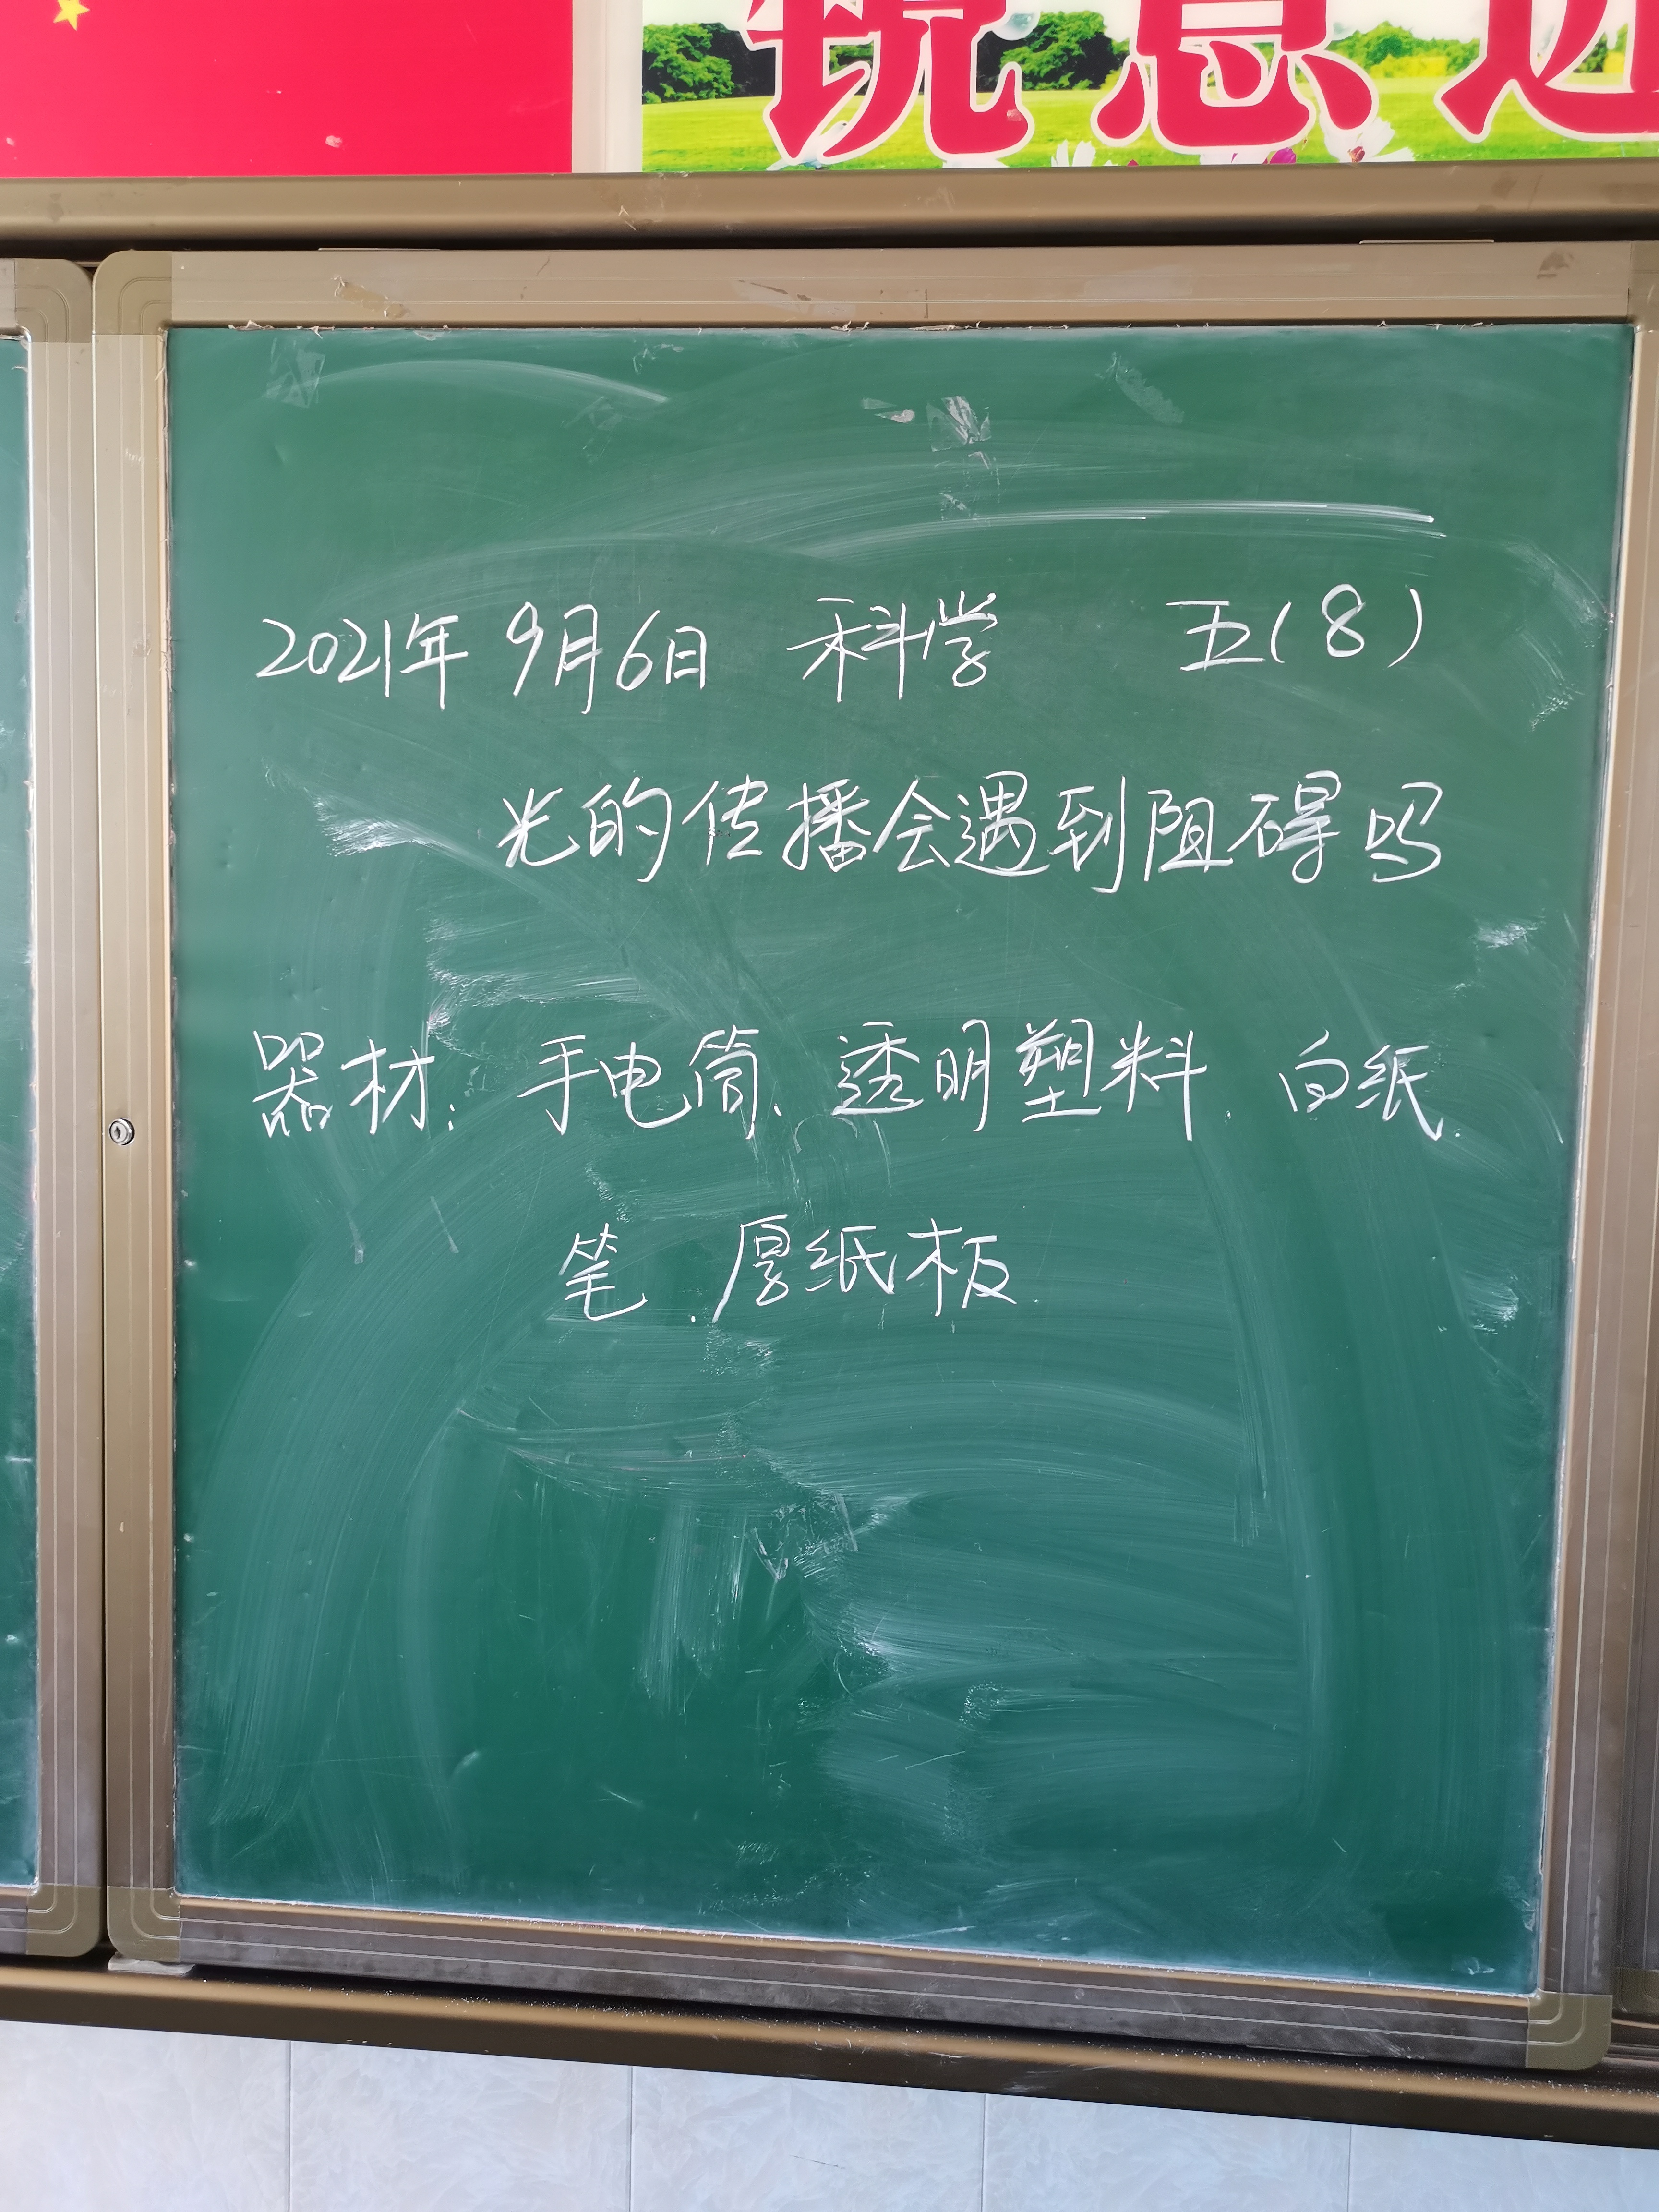 锐意进
2021年9月6日 科学 五(8)
光的传播会遇到阻碍吗
器材: 手电筒、透明塑料、白纸、
笔、厚纸板